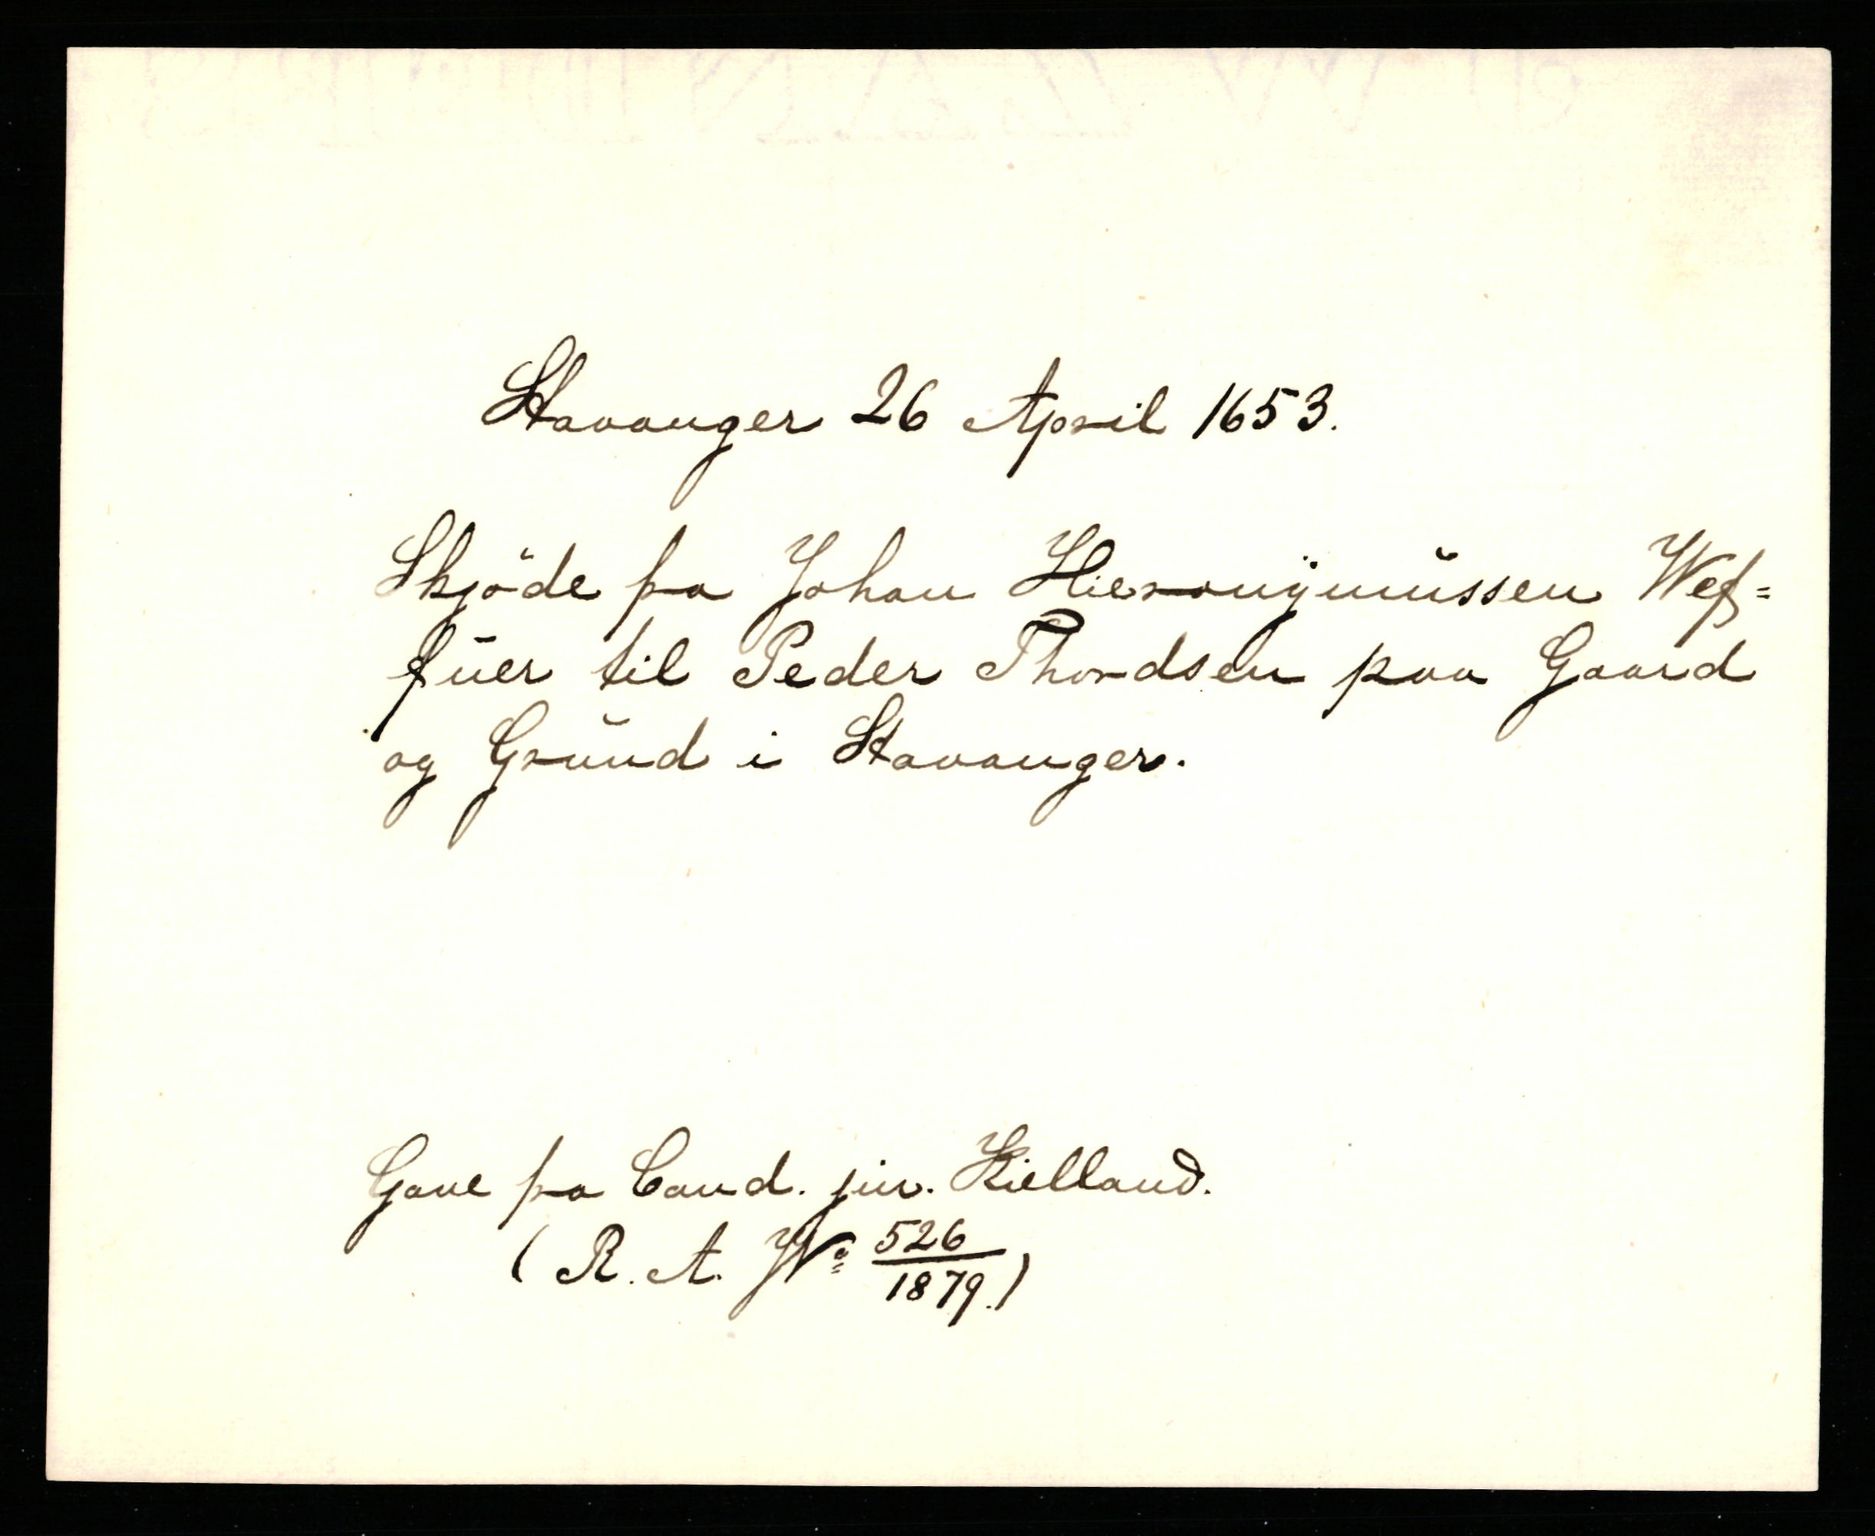 Stavanger 26 April 1653.
Skjöde fra Johan Hieronÿmussen Wef=
fuer til Peder Thordsen paa Gaard
og Grund i Stavanger.
Gave fra Cand. jur. Kielland.
( R. A. No 526/1879.)